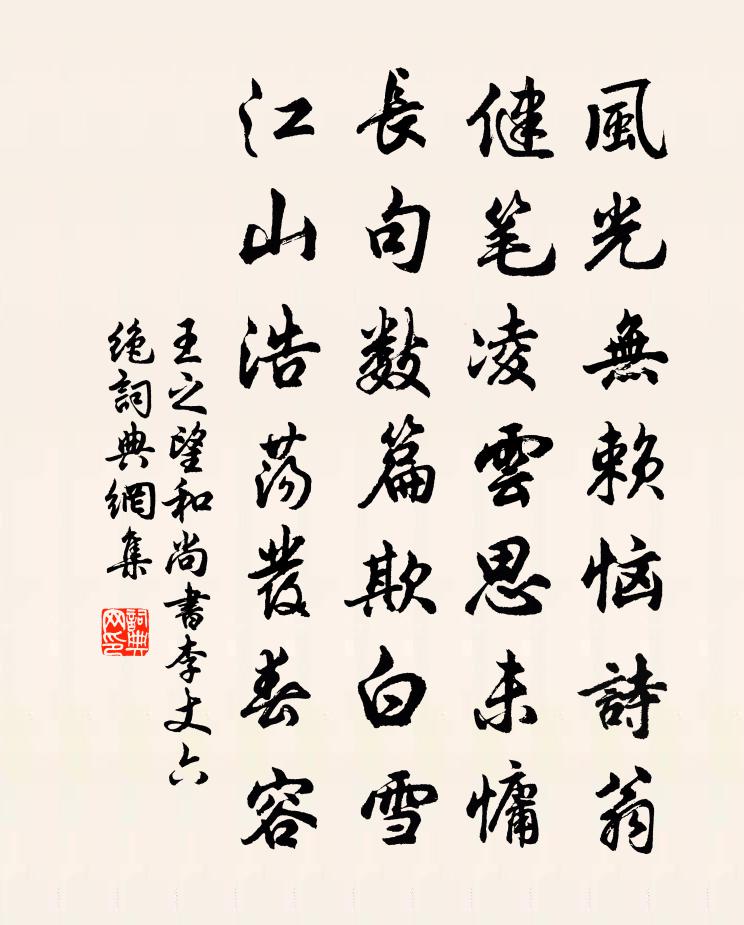 風光無賴惱詩翁
健笔凌雲思未慵
長句数篇欺白雪
江山浩荡發春容
王之望和尚書李丈六
絶詞典網集
詞典
网印